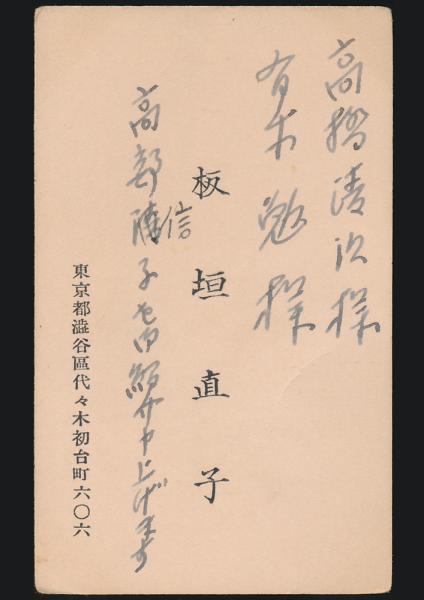 高橋清次様
有木勉様
板垣直子
高部信子を御紹介申上げます
東京都澁谷區代々木初台町六〇六